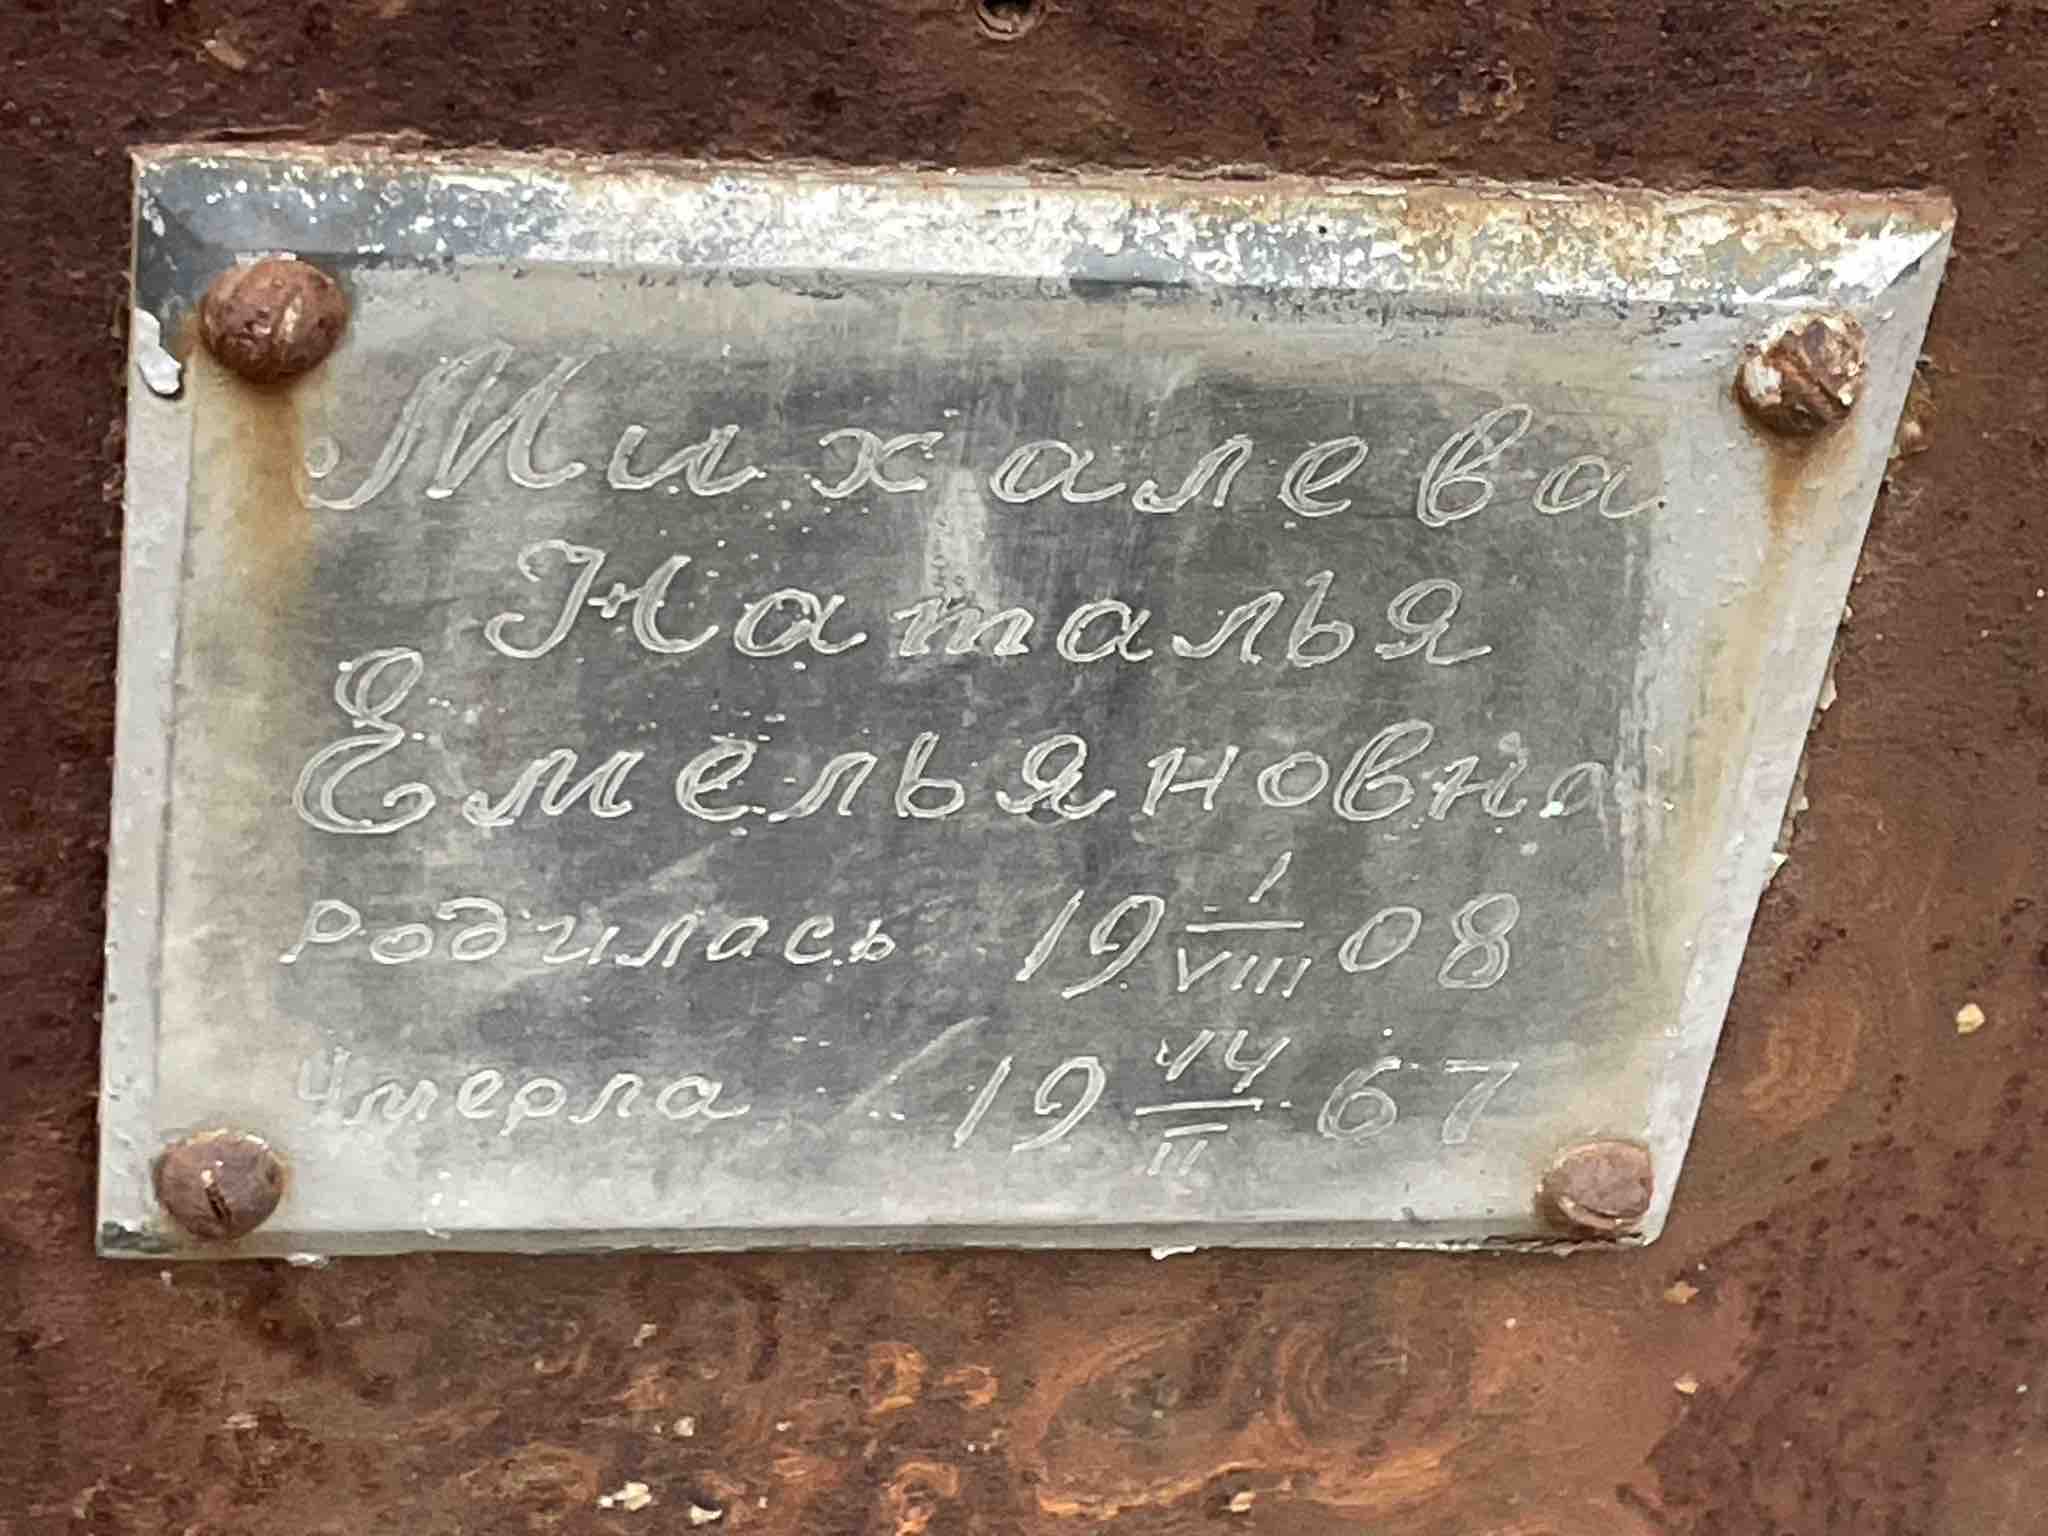 Михалева
Наталья
Емельяновна
Родилась 19 1/VIII 08
Умерла 19 14/II 67